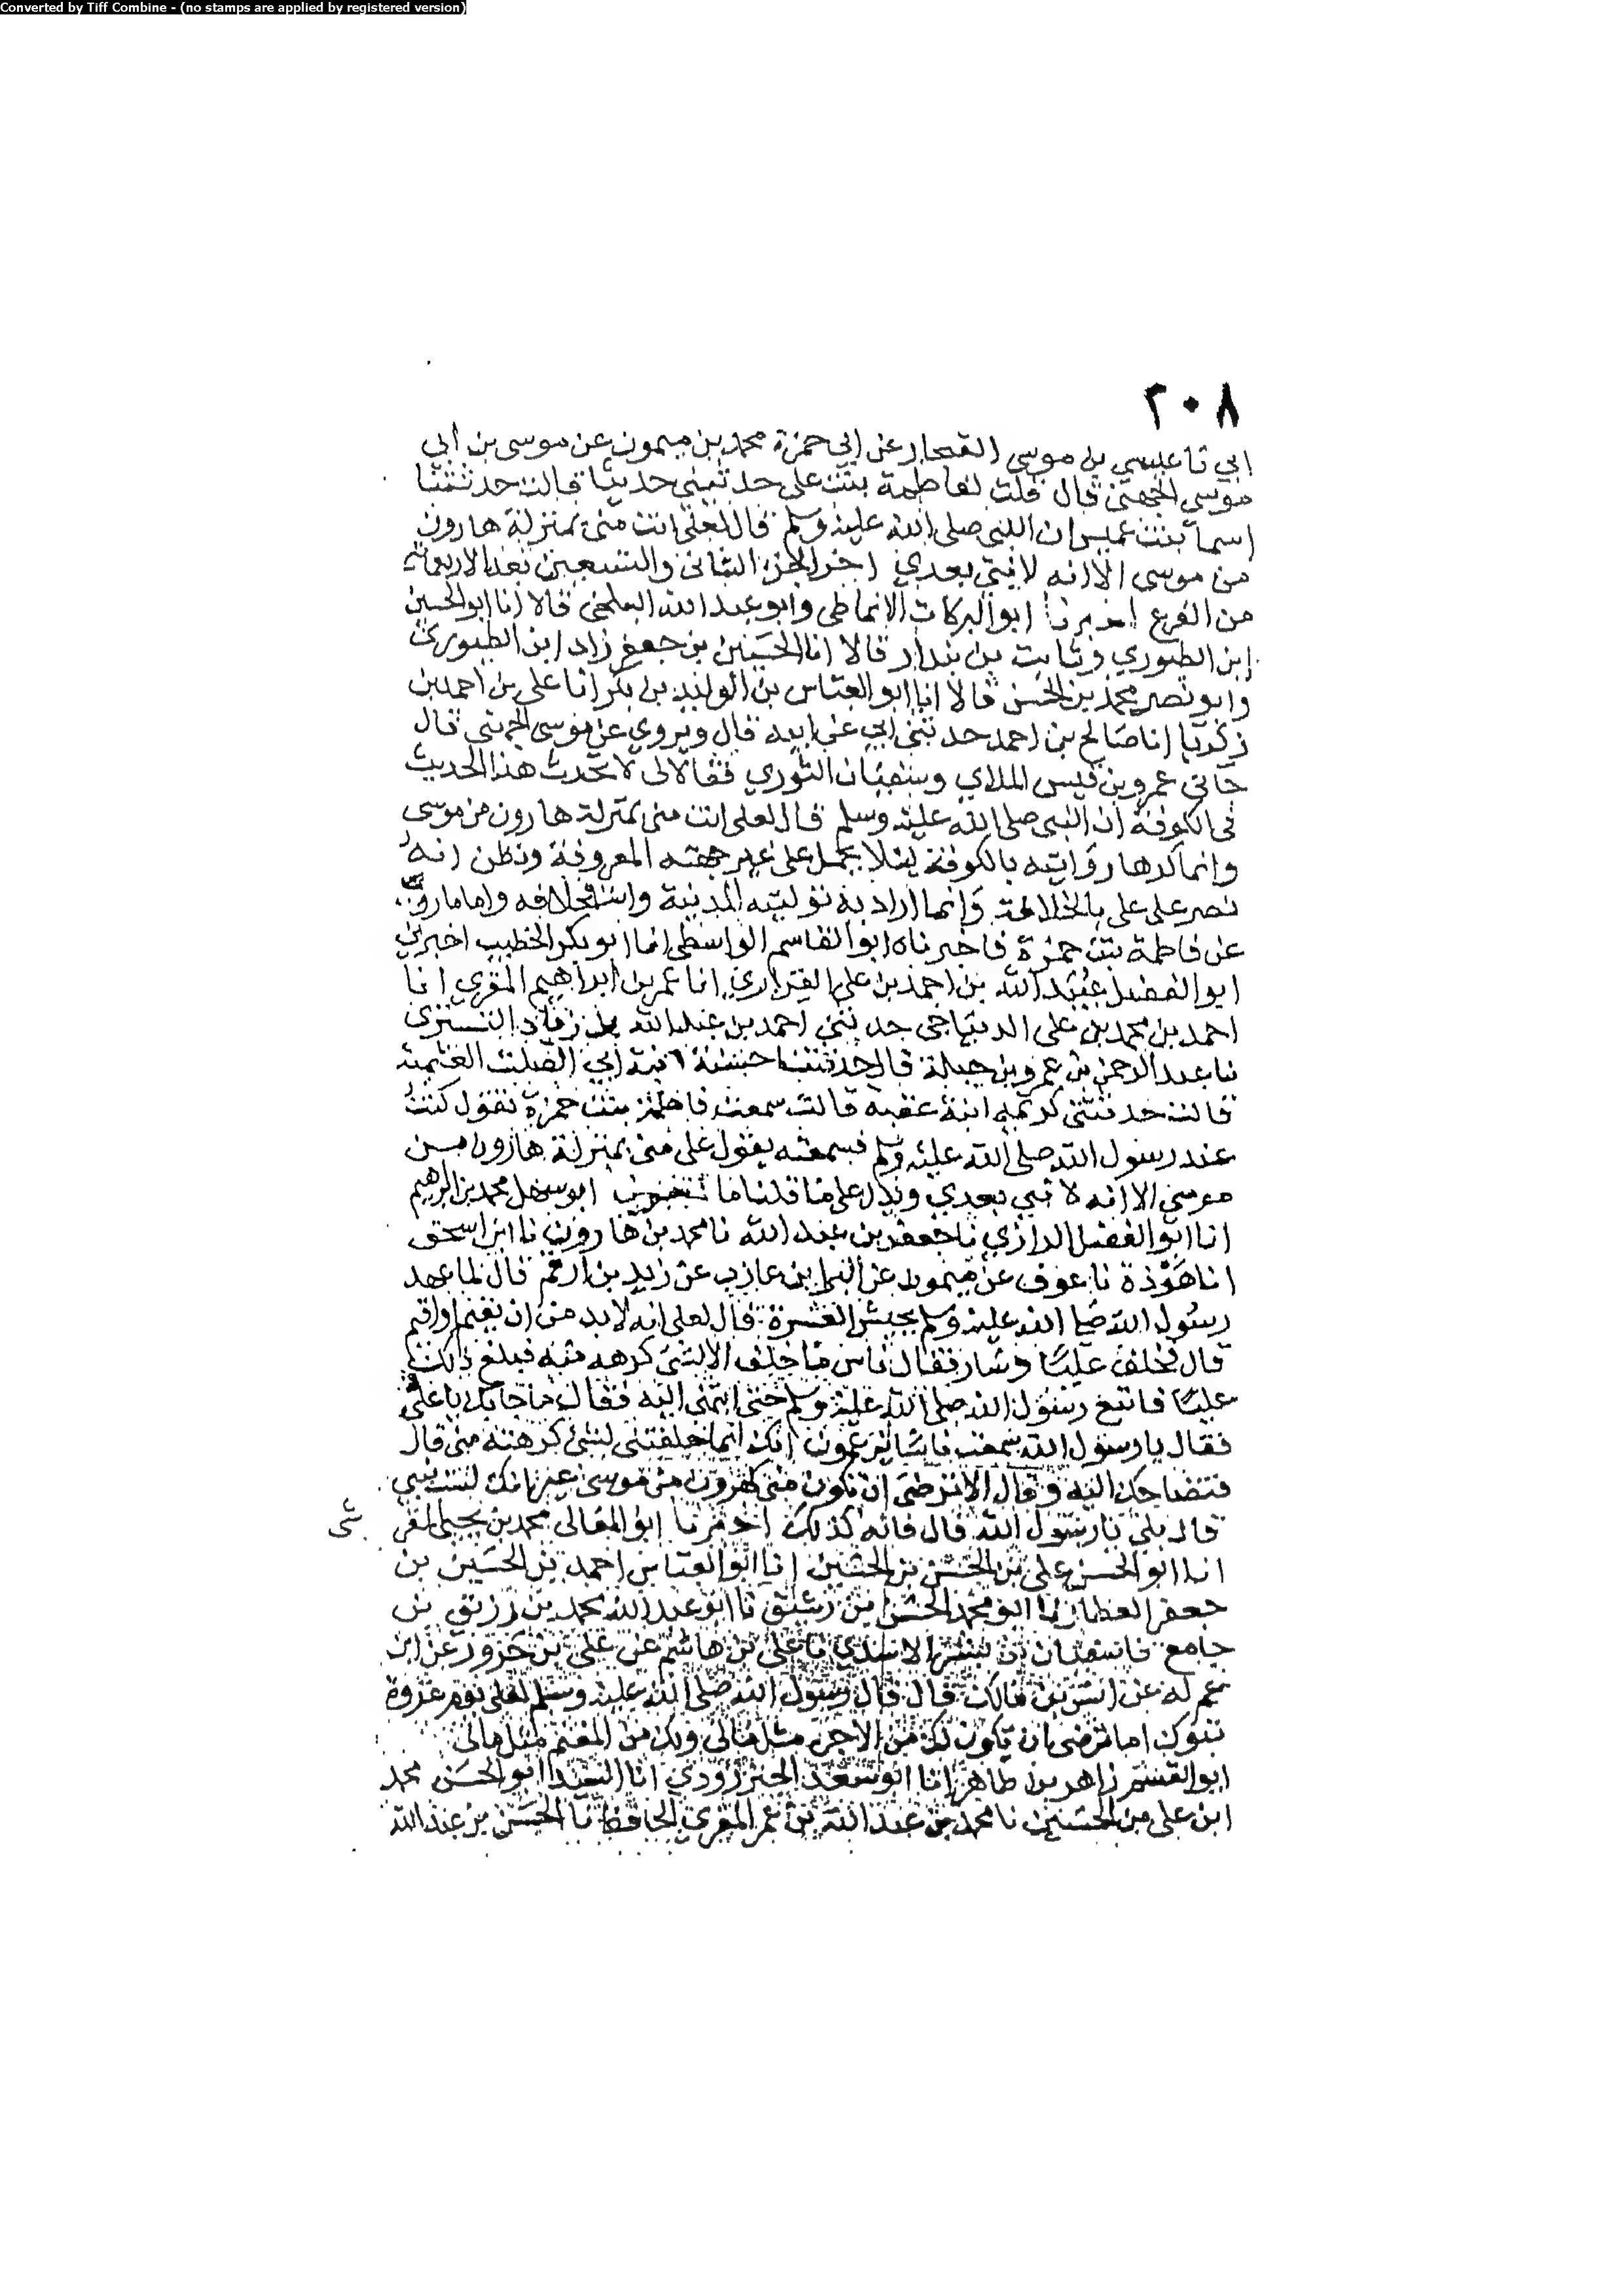 Converted by Tiff Combine - (no stamps are applied by registered version)
٢٠٨
ابي نا عيسى بن موسى عن ابي حمزة محمد بن ميمون عن موسى بن ابي
موسى الجهني قال قلت لفاطمة بنت على حدثيني حديثا قالت حدثتنا
اسما بنت عميس ان النبي صلى الله عليه وسلم قال لعلي انت مني بمنزلة هارون
من موسى الا انه لا نبي بعدي اخر الجزء الثاني والتسعين بعد الاربعمائة
من الفرع اخبرنا ابو البركات الانماطي وابو عبد الله البلخي قالا انا ابو الحسين
ابن الطيوري وثابت بن بندار قالا انا الحسين بن جعفر زاد ابن الطيوري
وابو نصر محمد بن الحسن قالا انا ابو العباس بن الوليد بن بكر انا على بن احمد بن
زكريا انا صالح بن احمد حدثني ابي عن ابيه قال ويروي عن موسى الجهني قال
جاني عمرو بن قيس الملاي وسفيان الثوري فقالا لى لا تحدث هذا الحديث
في الكوفة ان النبي صلى الله عليه وسلم قال لعلى انت مني بمنزلة هارون من موسى
وانما كرها روايته بالكوفة ليلا يحمل على غير جهته المعروفة ونظن انه
نصر على على بالخلافة وانما اراد به توليته المدينة واستخلافه واما
عن فاطمة بنت حمزة فاخبرناه ابو القاسم الواسطي انا ابو بكر الخطيب اخبرني
ابو الفضل عبيد الله بن احمد بن على انا عمر بن ابراهيم المقري انا
احمد بن محمد بن على الديباجي حدثني احمد بن عبد الله بن زياد التستري
نا عبد الرحمن بن عمرو بن جبلة قال حدثتنا ابنة ابي الصلت
قالت حدثتني كريمة ابنة عقبة قالت سمعت فاطمة بنت حمزة تقول كنت
عند رسول الله صلى الله عليه وسلم فسمعته يقول على مني بمنزلة هارون من
موسى الا انه لا نبي بعدي ويدل على ما قلنا ما ابو سهل محمد بن ابرهيم
انا ابو الفضل الرازي نا جعفر بن عبد الله نا محمد بن هارون نا ابن اسحق
انا هوذة نا عوف عن ميمون عن البرا بن عازب عن زيد بن ارقم قال لما عهد
رسول الله صلى الله عليه وسلم بجيش العسرة قال لعلي انه لابد من ان تقيم او اقيم
قال فخلف عليا وسار فقال ناس ما خلفه الا لشي كرهه منه فبلغ ذلك
عليا فاتبع رسول الله صلى الله عليه وسلم حتى انتهى اليه فقال ما جا بك يا على
فقال يا رسول الله سمعت ناسا يزعمون انك انما خلفتني لشي كرهته مني قال
فتضاحك اليه وقال الا ترضى ان تكون مني كهرون من موسى غير انك لست بنبي
قال بلى يا رسول الله قال فانه كذلك اخبرنا ابو المعالى محمد بن يحيى القر
شى
انا ابو الحسن على بن الحسن بن الحسين انا ابو العباس احمد بن الحسين بن
جعفر العطار نا ابو محمد الحسن بن رشيق نا ابو عبد الله محمد بن رزيق بن
جامع نا سفيان بن بشر الاسدي نا على بن هاشم عن على بن حزور عن ابن
عم له عن انس بن مالك قال قال رسول الله صلى الله عليه وسلم لعلى يوم غزوة
تبوك اما ترضى ان يكون لك من الاجر مثل مالى ولك من المغنم مثل مالى
ابو القسم زاهر بن طاهر انا ابو سعد الجنزرودي انا السيد ابو الحسن محمد
ابن على بن الحسين نا محمد بن عبد الله بن عمر المقري الحافظ نا الحسن بن عبد الله